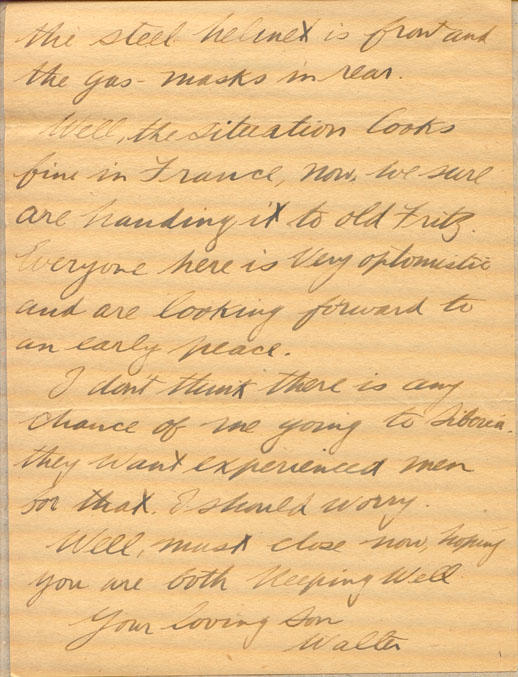 the steel helmet is front and
the gas-masks in rear.
Well, the situation looks
fine in France, now, we sure
are handing it to old Fritz.
Everyone here is Very optomistic
and are looking forward to
an early peace.
I don't think there is any
chance of me going to Siberia.
they want experienced men
for that. I should worry.
Well, must close now, hoping
you are both Keeping Well
Your loving Son
Walter